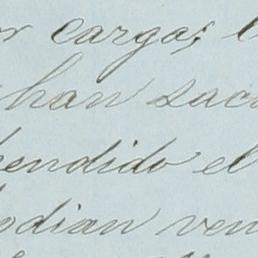 cargos; l
han saca
pendido el
odian ven